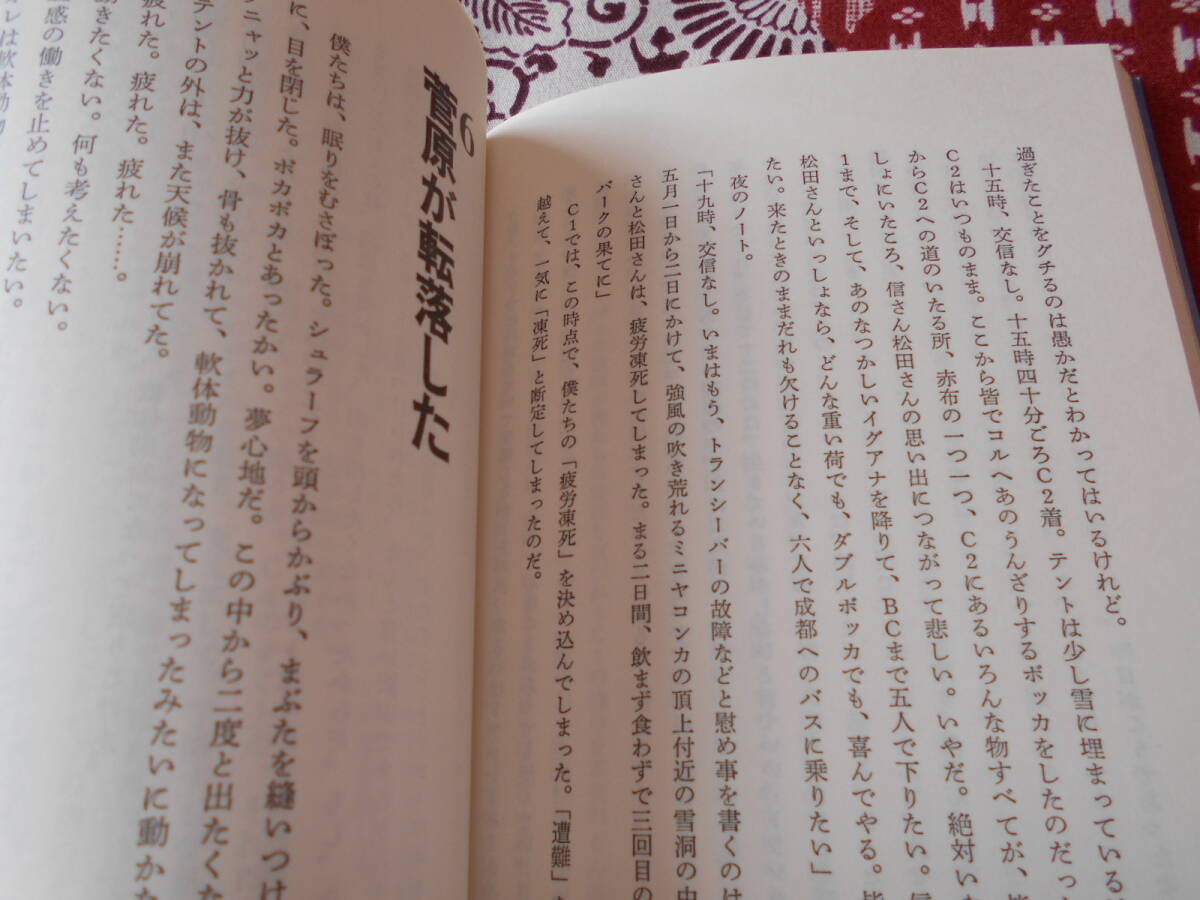 過ぎたことをグチるのは愚かだとわかってはいるけれど。
十五時、交信なし。十五時四十分ごろC2着。テントは少し雪に埋まっている
C2はいつものまま。ここから皆でコルへあのうんざりするボッカをしたのだっ
からC2への道のいたる所、赤布の一つ一つ、C2にあるいろんな物すべてが、皆
しょにいたころ、信さん松田さんの思い出につながって悲しい。いやだ。絶対いま
松田さんといっしょなら、どんな重い荷でも、ダブルボッカでも、喜んでやる。皆
1まで、そして、あのなつかしいイグアナを降りて、BCまで五人で下りたい。信
たい。来たときのままだれも欠けることなく、六人で成都へのバスに乗りたい」
夜のノート。
「十九時、交信なし。いまはもう、トランシーバーの故障などと慰め事を書くのは
五月一日から二日にかけて、強風の吹き荒れるミニヤコンカの頂上付近の雪洞の中
さんと松田さんは、疲労凍死してしまった。まる二日間、飲まず食わずで三回目の
バークの果てに」
C1では、この時点で、僕たちの「疲労凍死」を決め込んでしまった。「遭難」
越えて、一気に「凍死」と断定してしまったのだ。
6
菅原が転落した
僕たちは、眠りをむさぼった。シュラーフを頭からかぶり、まぶたを縫いつけ
に、目を閉じた。ポカポカとあったかい。夢心地だ。この中から二度と出たくな
ニャッと力が抜け、骨も抜かれて、軟体動物になってしまったみたいに動かな
テントの外は、また天候が崩れてた。
疲れた。疲れた。疲れた……。
動きたくない。何も考えたくない。
感の働きを止めてしまいたい。
レは軟体動物